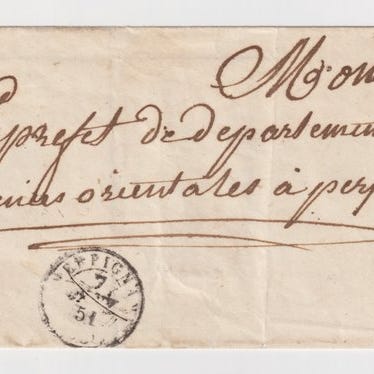 Mon
prefet de departemen
orientales à perp
PERPIGNAN
7
51